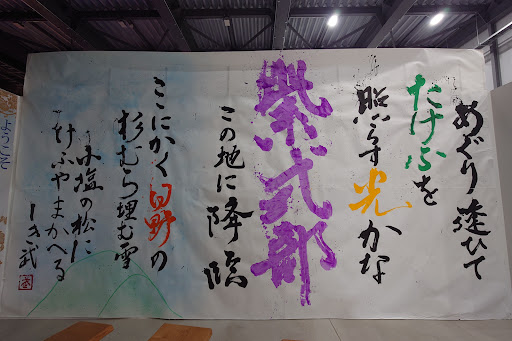 めぐり逢ひて
たけふを
照らす光かな
紫式部
この地に降臨
ここにかく日野の
杉むら埋む雪
小塩の松に
けふやまかへる
ようこそ